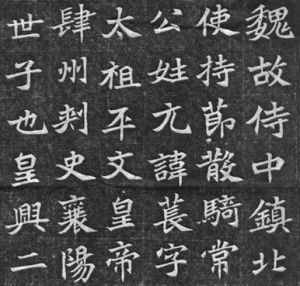 魏故侍中鎮北
使持莭散騎常
公姓元諱萇字
太祖平文皇帝
肆州刾史襄陽
世子也皇興二